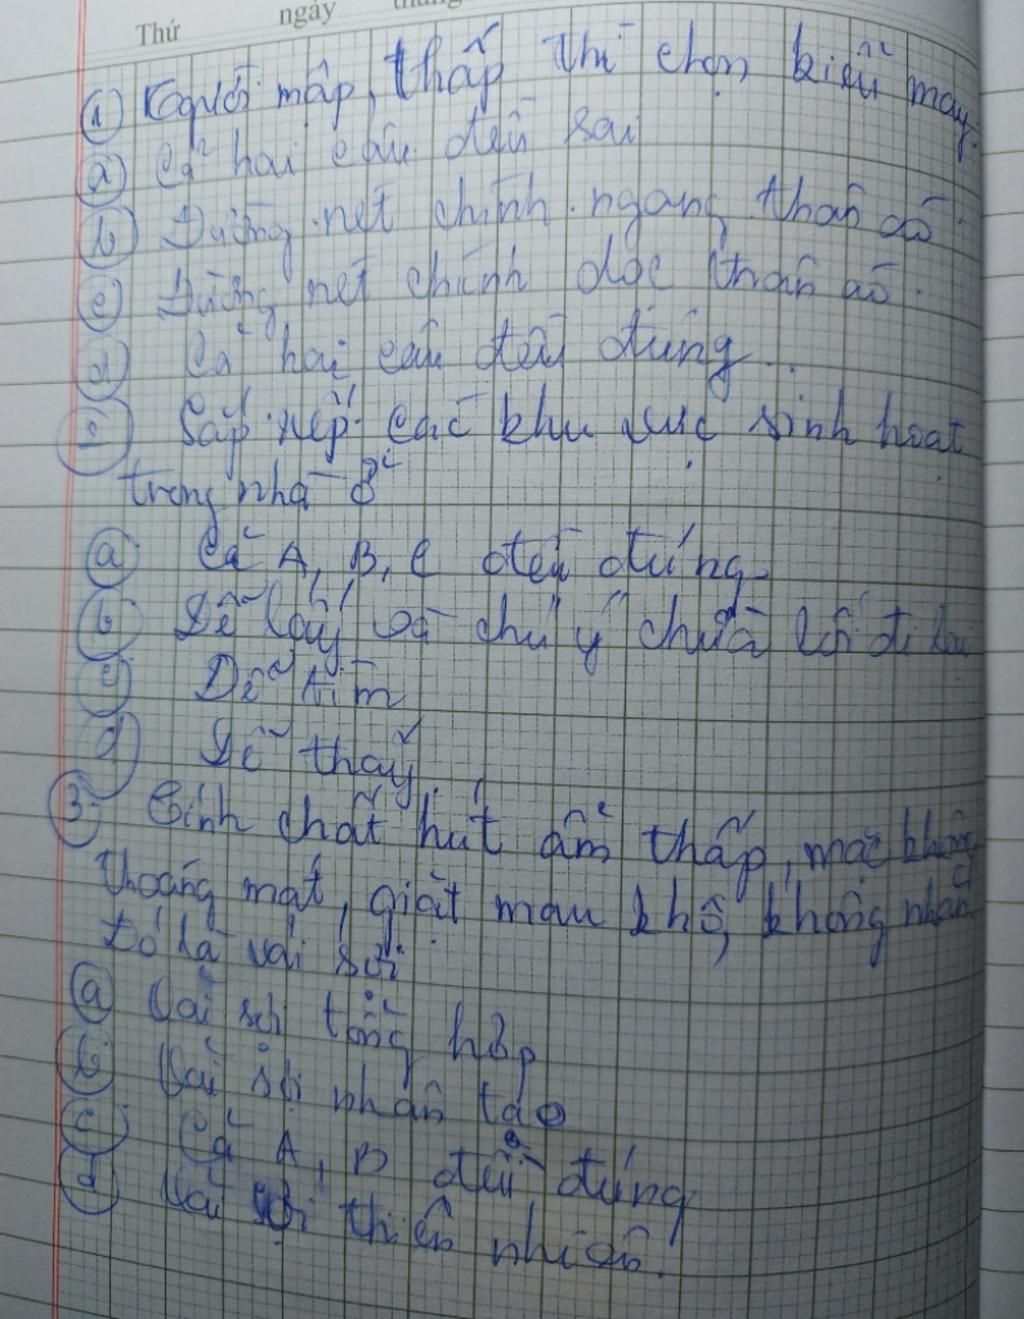 Thứ ngày tháng
① Người mập, thấp thì chọn kiểu may.
ⓐ Cả hai câu đều sai
ⓑ Đường nét chính ngang thân áo.
ⓒ Đường nét chính dọc thân áo.
ⓓ Cả hai câu đều đúng...
② Sắp xếp các khu vực sinh hoạt
trong nhà ở
ⓐ Cả A, B, C đều đúng
ⓑ Dễ lấy và chú ý chừa lối đi lại
ⓒ Dễ tìm
ⓓ Dễ thấy
③ Tính chất hút ẩm thấp, mặc không
thoáng mát, giặt mau khô, không nhàn
Đó là vải sợi
ⓐ Vải sợi tổng hợp
ⓑ Vải sợi nhân tạo
ⓒ Cả A, B đều đúng
ⓓ Vải sợi thiên nhiên.